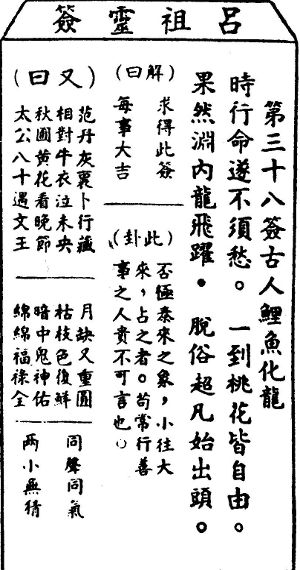 呂祖靈簽
第三十八簽古人鯉魚化龍
時行命遂不須愁。一到桃花皆自由。
果然淵內龍飛躍。脫俗超凡始出頭。
(解曰)
求得此簽
每事大吉
(此卦)
否極泰來之象,小往大
來,占之者。苟常行善
事之人貴不可言也。
(又曰)
范丹灰裏卜行藏
相對牛衣泣未央
秋圃黄花看晚節
太公八十遇文王
月缺又重圓
枯枝色復鮮
暗中鬼神佑
綿綿福祿全
同聲同氣
两小無猜